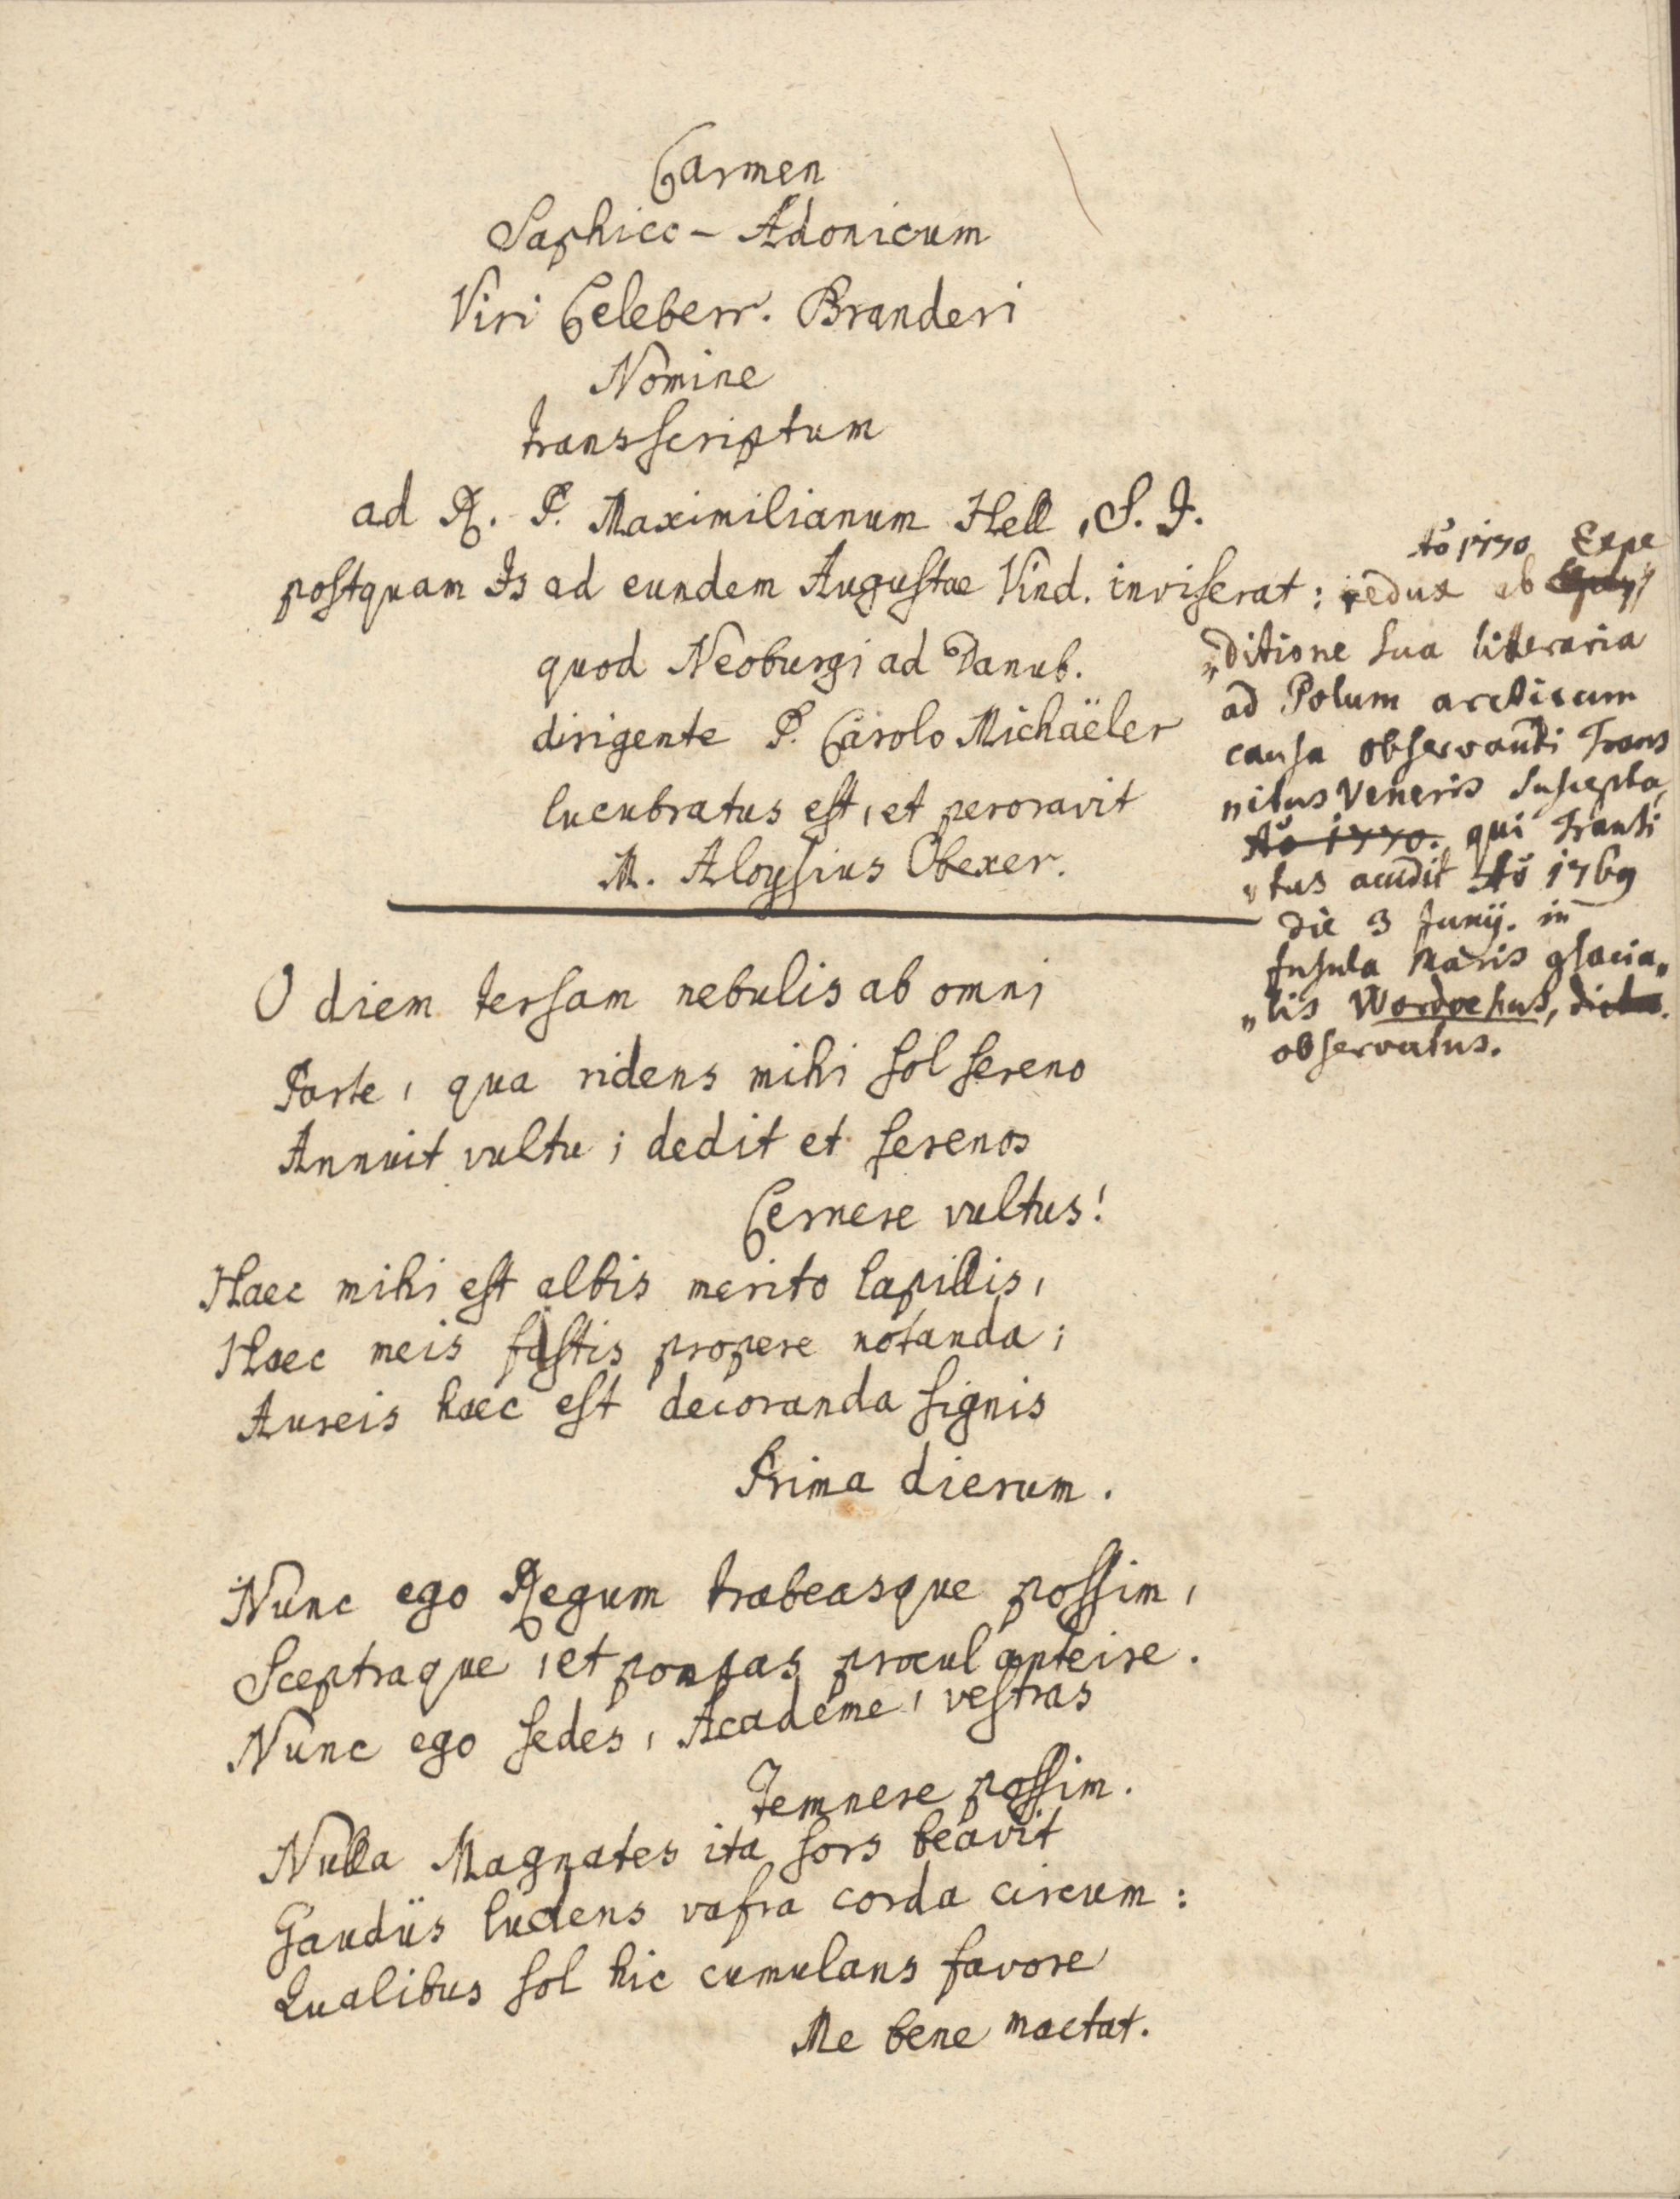 Carmen
Saphico - Adonicum
Viri Celeberr. Branderi
Nomine
transscriptum
ad R. P. Maximilianum Hell, S. J.
postquam Is ad eundem Augustae Vind. inviserat :
quod Neoburgi ad Danub.
dirigente P. Carolo Michaëler
lucubratus est, et peroravit
M. Aloysius Obexer.
Aō 1770 Expe
redux ab
„ditione sua literaria
ad Polum arcticum
causa observandi Trans
„itus Veneris suscepta,
Aō 1770. qui Transi
„tus accidit Aō 1769
die 3 Junij. in
Insula Maris glacia„
„lis Wardoehus, dicta.
observatus.
O diem tersam nebulis ab omni
Parte, qua ridens mihi sol sereno
Annuit vultu; dedit et serenos
Cernere vultus!
Haec mihi est albis merito lapillis,
Haec meis fastis propere notanda;
Aureis haec est decoranda signis
Prima dierum.
Nunc ego Regum trabeasque possim,
Sceptraque, et pompas procul anteire.
Nunc ego sedes, Academe, vestras
Temnere possim.
Nulla Magnates ita sors beavit
Gaudiis ludens vafra corda circum:
Qualibus sol hic cumulans favore
Me bene mactat.